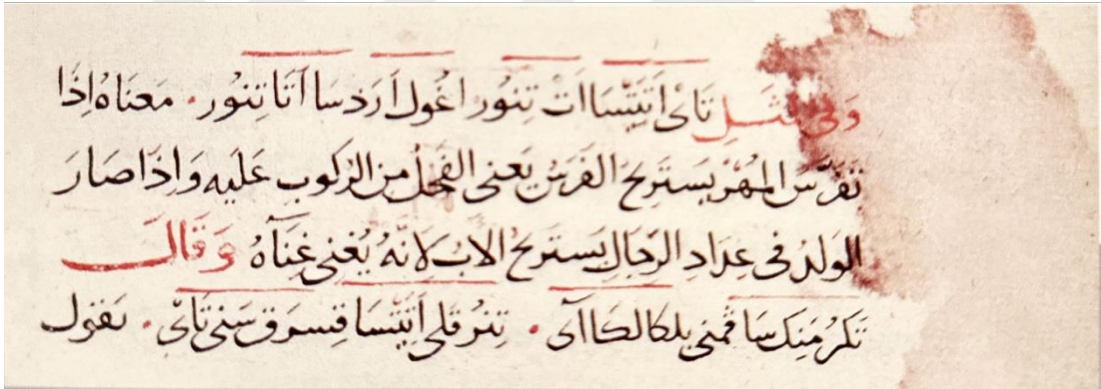 وفى المثل تاى اَتَيَتَّسَا اَتْ تِنوُر اغُول اَرَدْسَا اَتَا تِنوُر. معَنَاهُ اِذَا
تَفَرَّسَ المُهْرُ يَستَرِيحُ الفَرَسُ يَعنى الفَحْلُ مِن الرُكوُبِ عَلَيه وَاِذَا صَارَ
الوَلدُ فى عِدَادِ الرِّجَالِ يَستَرِيحُ الاَبُ لِاَنَّهُ يُغْنى غِنَآهُ وَقَالَ
تَكرُ مِنِك سَا قُمنى بلكا لكَا آى . تِنرُ قلى اَتَيَتَّسَا قِسرَق سَنى تَاىْ . يَقول